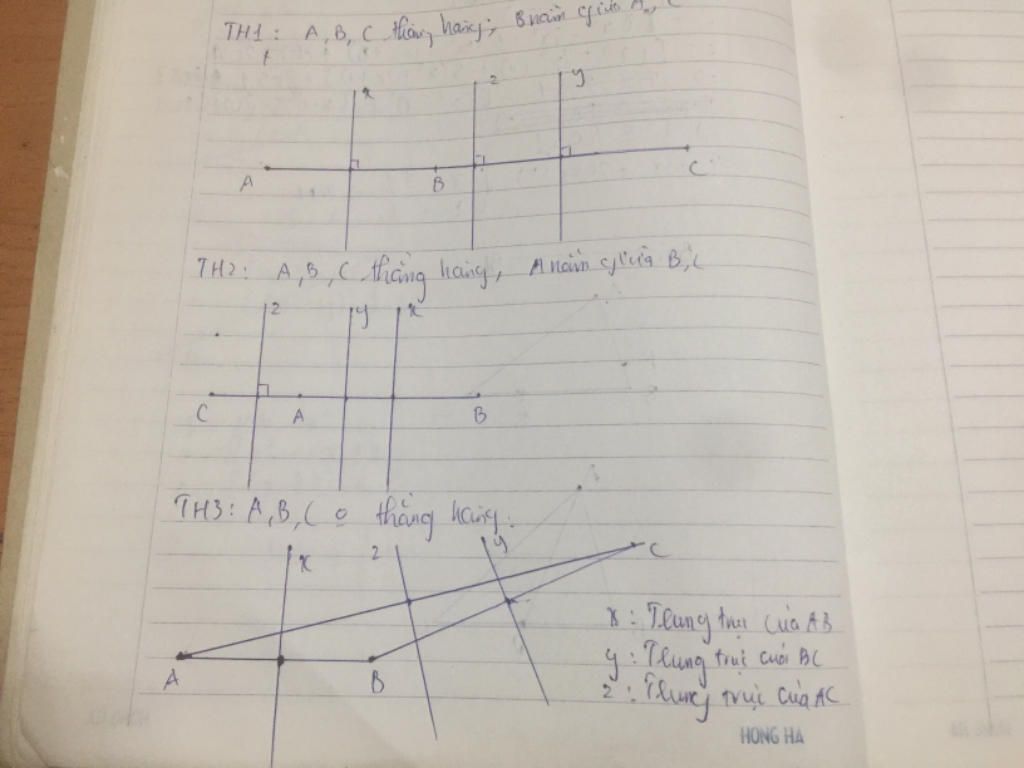 TH1: A, B, C thẳng hàng, B nằm giữa A, C
x
z
y
A
B
C
TH2: A, B, C thẳng hàng, A nằm giữa B, C
z
y
x
C
A
B
TH3: A, B, C o thẳng hàng.
x
z
y
C
A
B
x: Trung trực của AB
y: Trung trực của BC
z: Trung trực của AC
HONG HA